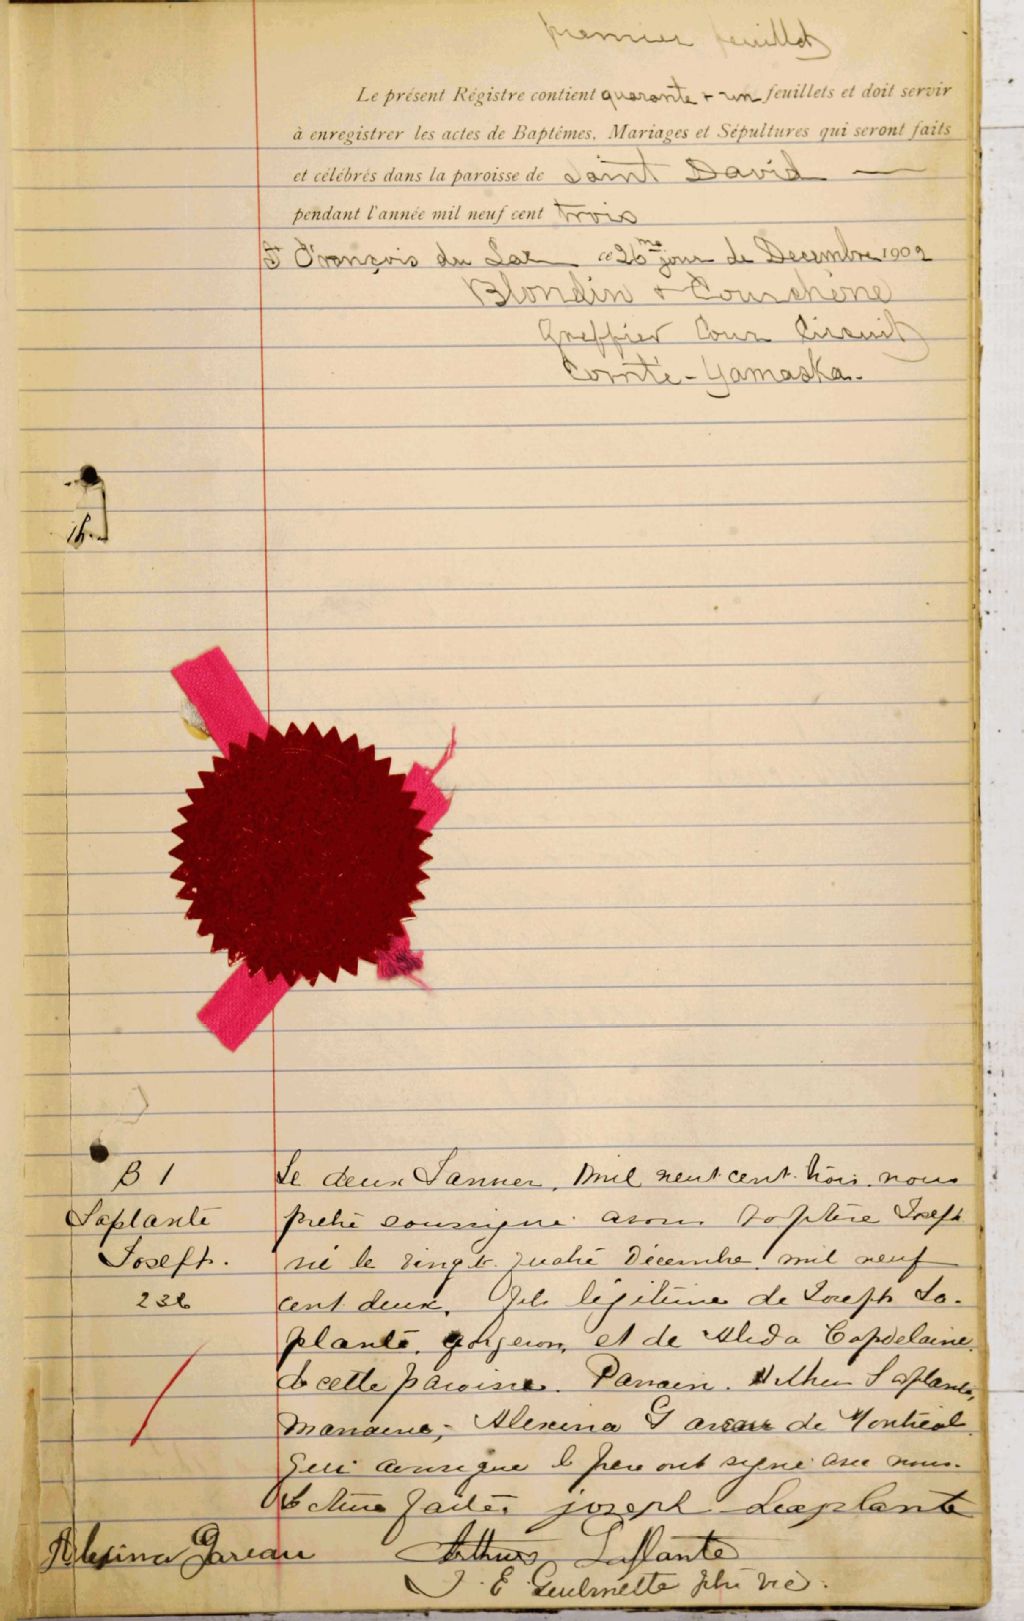 premier feuillet
Le présent Régistre contient quarante + un feuillets et doit servir
à enregistrer les actes de Baptêmes, Mariages et Sépultures qui seront faits
et célébrés dans la paroisse de Saint David —
pendant l'année mil neuf cent trois
St François du Lac ce 26me jour de Decembre 1902
Blondin & Courchène
Greffier Cour Circuit
Comté - Yamaska.
B 1
Laplante
Joseph.
Le deux Janvier, mil neuf cent trois, nous
prêtre soussigné avons baptisé Joseph
né le vingt quatre Décembre mil neuf
cent deux, fils légitime de Joseph La-
plante, forgeron, et de Alida Capdelaine
de cette paroisse. Parrain, Arthur Laplante,
marraine, Alexina Gareau de Montréal
qui ainsi que le père ont signé avec nous.
Lecture faite. joseph Laplante
Alexina Gareau
Arthur Laplante
J. E. ptre vic.